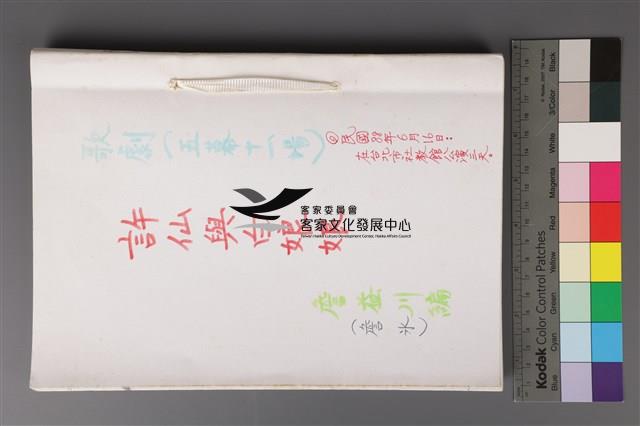 歌劇(五幕十一場)
◎民國88年6月16日:
在台北市社教館公演三天。
許仙與白娘娘
詹益川編
(詹氷)
客家委員會
客家文化發展中心
Taiwan Hakka Culture Development Center, Hakka Affairs Council
Kodak Color Control Patches
Blue
Cyan
Green
Yellow
Red
Magenta
White
3/Color
Black